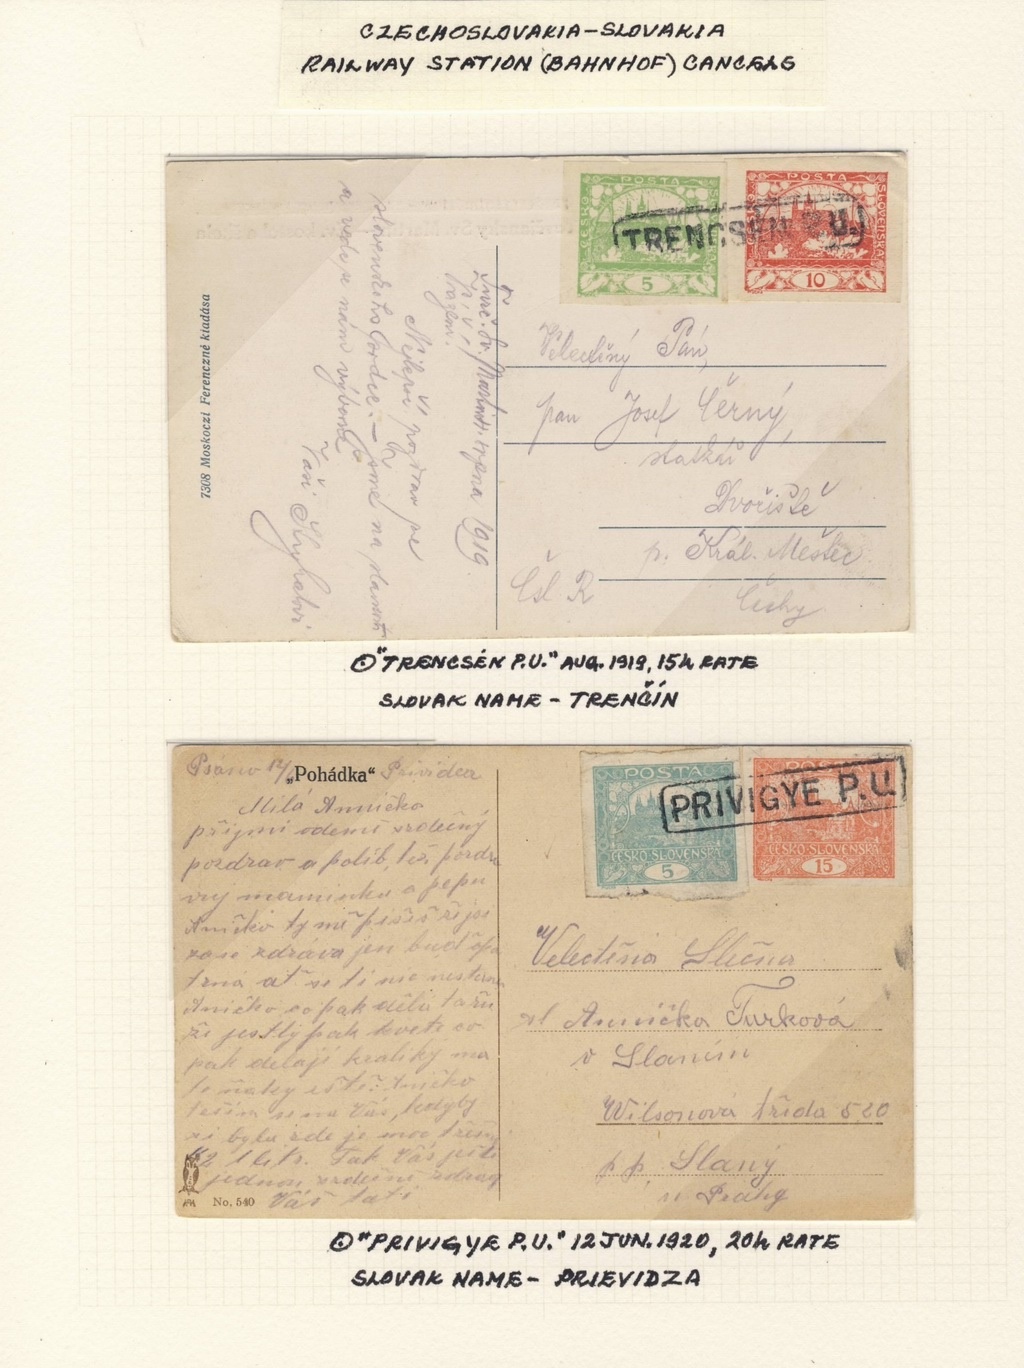 CZECHOSLOVAKIA-SLOVAKIA
RAILWAY STATION (BAHNHOF) CANCELS
POSTA
ČESKO
SLOVENSKÁ
5
POSTA
ČESKO
SLOVENSKÁ
10
TRENCSÉN P.U.
7308 Moskoczi Ferenczné kiadása
srpna 1919.
Nejlepší pozdrav ze
slovenského
a vede se nám výborně
Vaši
Velectěný Pán,
pan Josef Černý,
statkář
Dvořiště
p. Král. Městec
Čsl. R
Čechy
⊙"TRENCSÉN P.U." AUG. 1919, 15h RATE
SLOVAK NAME - TRENČÍN
Psáno 12/ „Pohádka“ Prividea
Milá Anničko
přijmi odemě srdečný
pozdrav a políb. též pozdra
vuj maminku a pepu
Aničko ty mě píšeš že jsi
zase zdráva jen buď opa
trná ať se ti nic nestane
Aničko co pak dělá
že jestly pak kvete co
pak dělají králíky
Aničko
těším se na Vás, kdyby
si byla zde je moc třešní
K2 1 litr. Tak Vás ještě
jednou srdečně zdraví
Váš tatí
No. 540
POSTA
ČESKO-SLOVENSKÁ
5
POSTA
ČESKO-SLOVENSKÁ
15
PRIVIGYE P.U.
Velectěná Slečna
sl Annička Turková
v Slaném
Wilsonová třída 520
p.p. Slaný
u Prahy
⊙"PRIVIGYE P.U." 12 JUN. 1920, 20h RATE
SLOVAK NAME - PRIEVIDZA